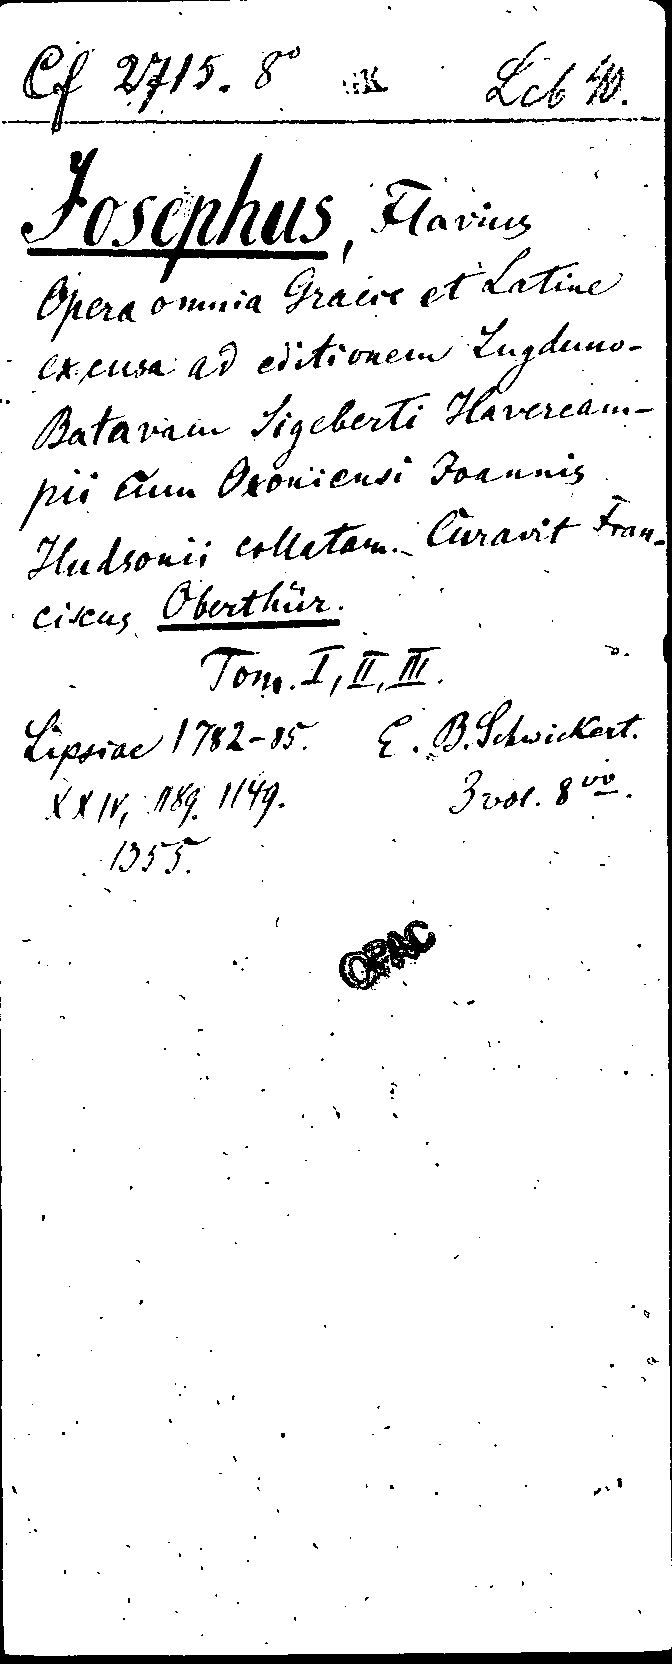 Cf 2715. 8° Lcb 40.
Josephus, Flavius
Opera omnia Graece et Latine
excusa ad editionem Lugduno-
Batavam Sigeberti Havercam-
pii cum Oxoniensi Joannis
Hudsonii collatam. Curavit Fran-
ciscus Oberthür.
Tom. I, II, III.
Lipsiae 1782-85. E. B. Schwickert.
XXIV, 1189. 1149. 3 vol. 8vo.
1355.
OPAC